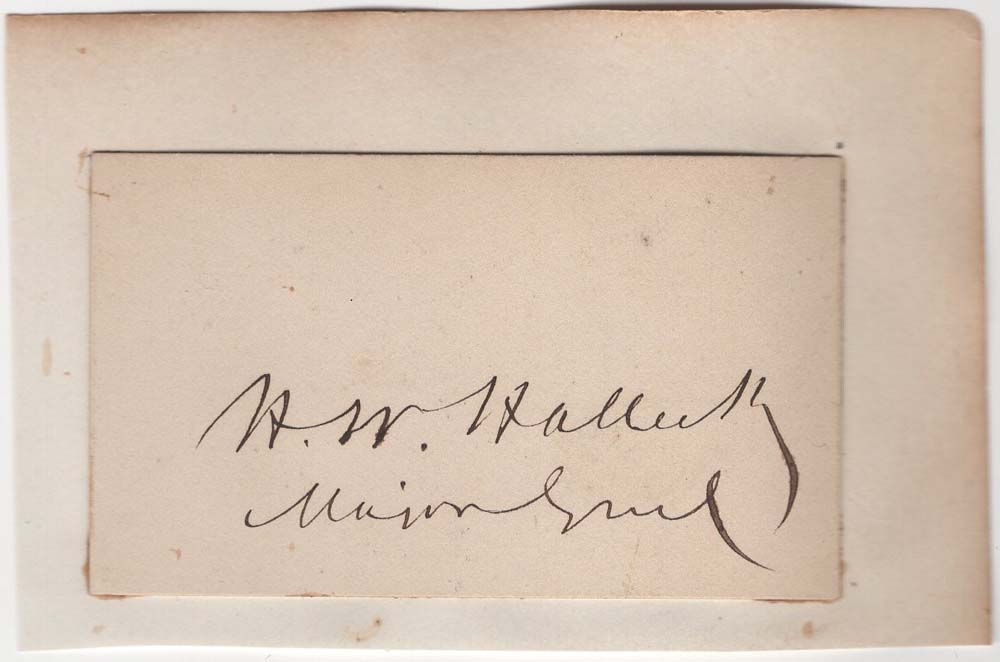 H. W. Halleck
Major Genl